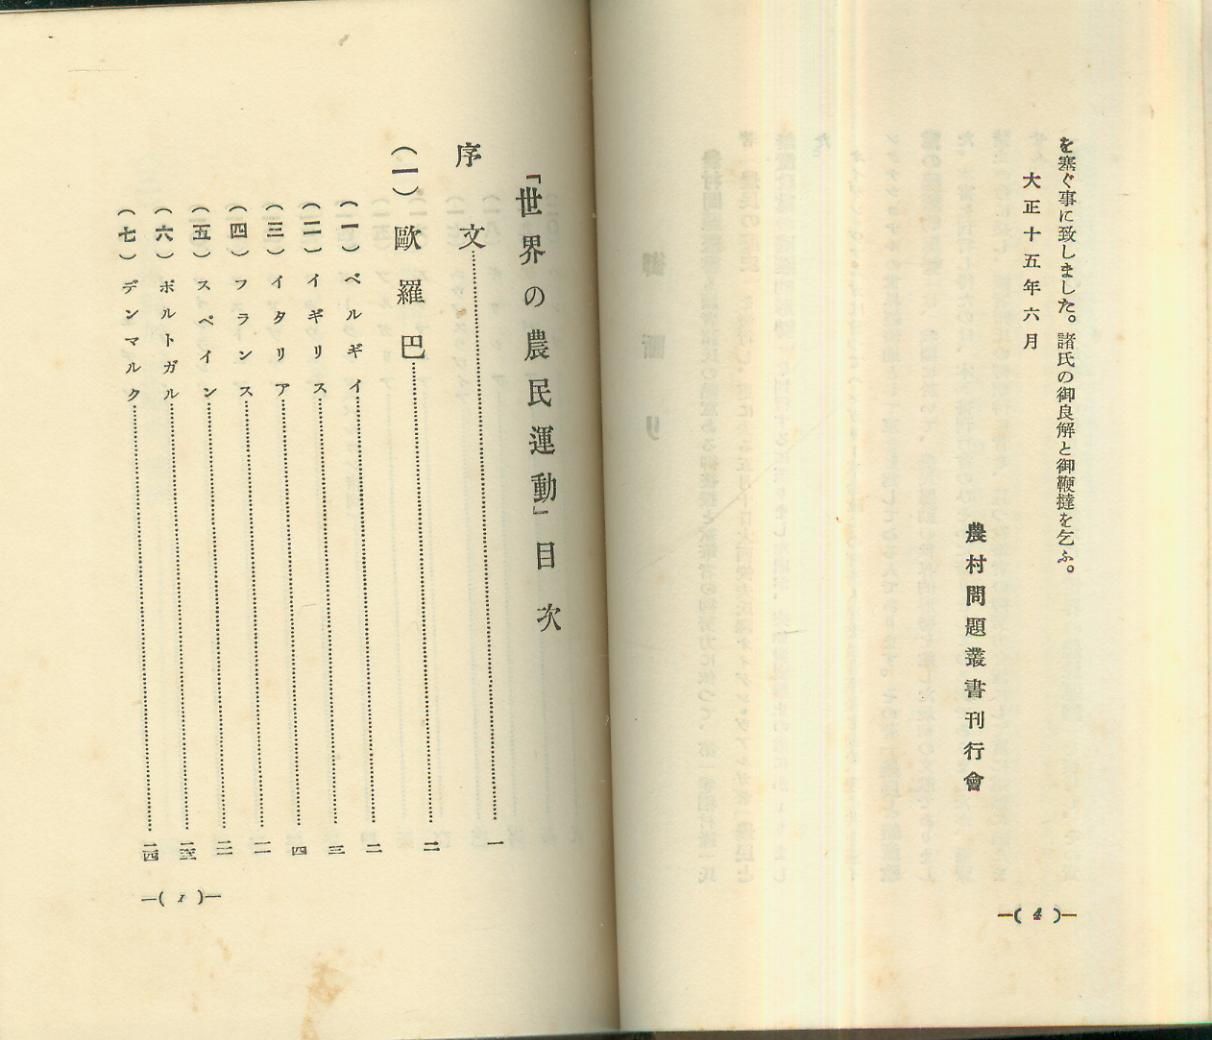 を塞ぐ事に致しました。諸氏の御良解と御鞭撻を乞ふ。
大正十五年六月
農村問題叢書刊行會
—( 4 )—
「世界の農民運動」目次
序文……一
(一) 歐羅巴……二
(一) ベルギイ……二
(二) イギリス……三
(三) イタリア……四
(四) フランス……
(五) スペイン……
(六) ポルトガル……
(七) デンマルク……二四
—( 1 )—